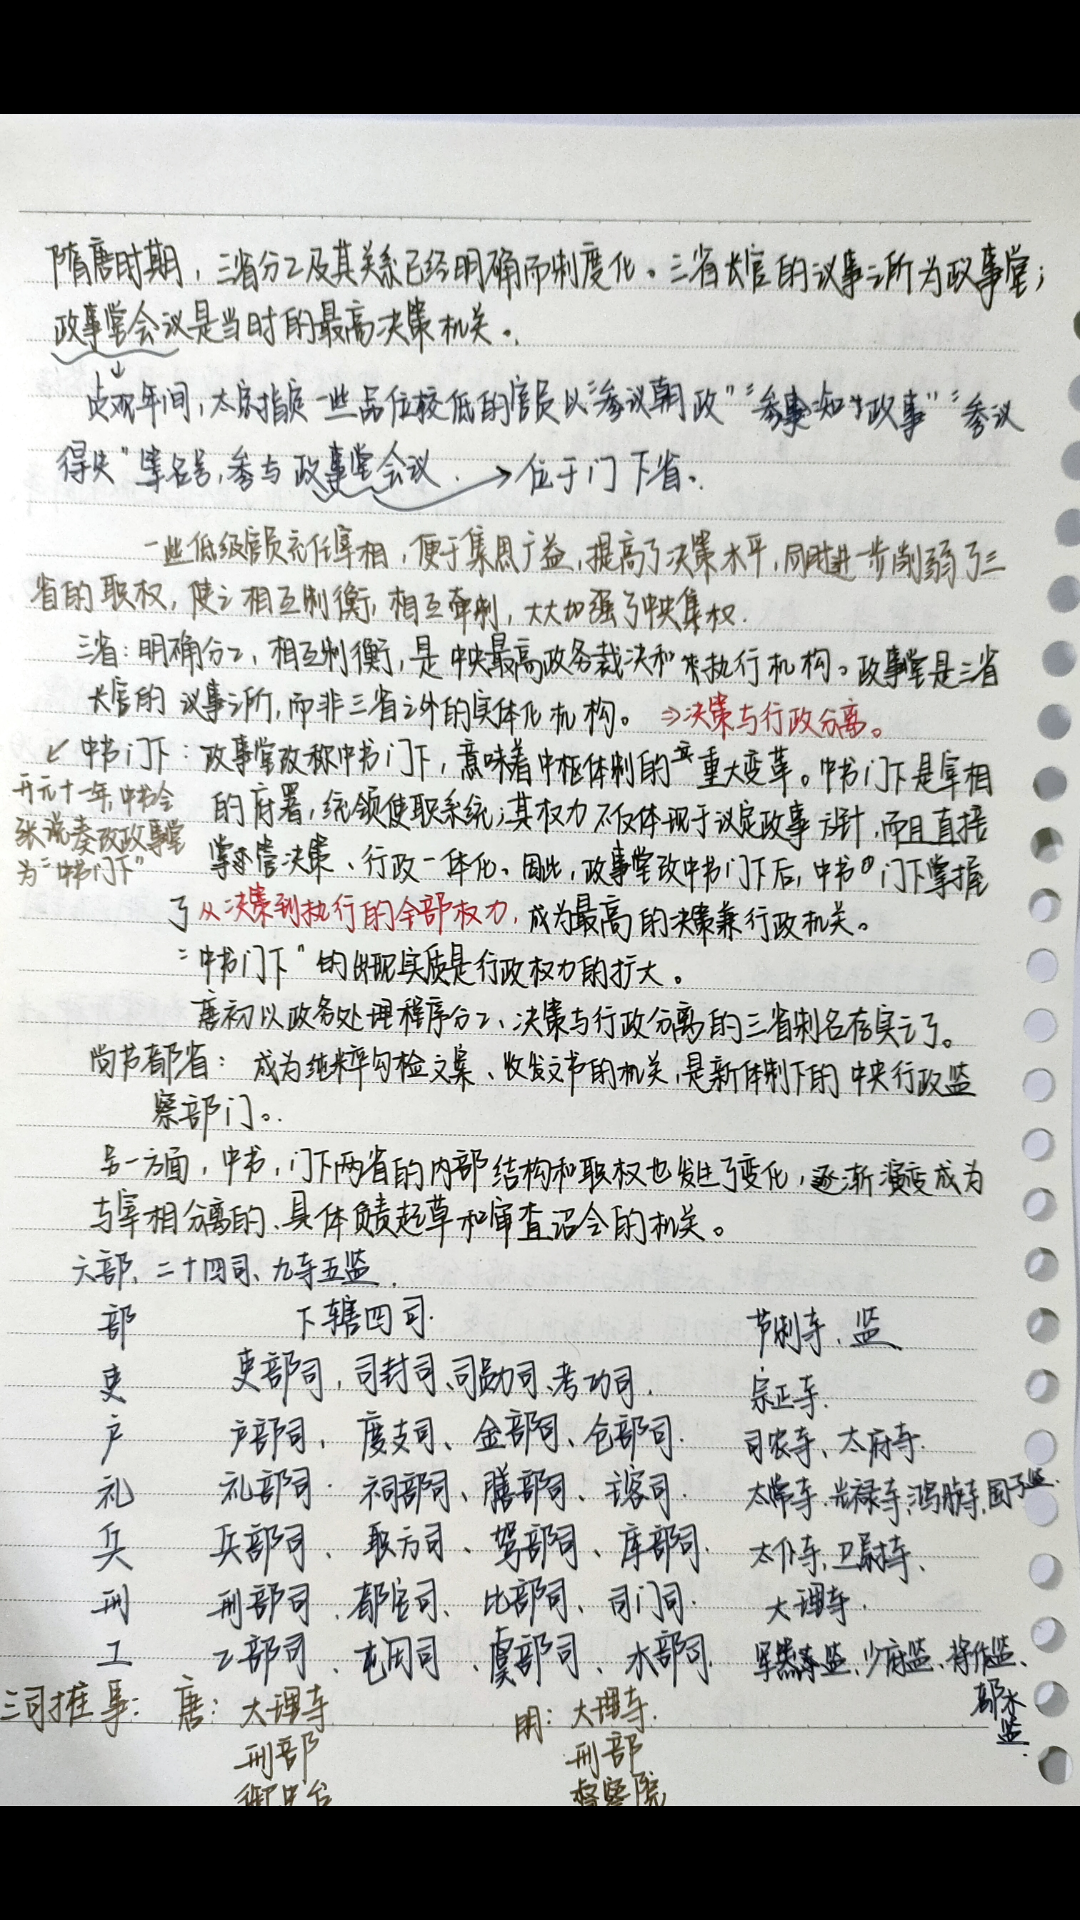 隋唐时期，三省分工及其关系已经明确而制度化。三省长官的议事之所为政事堂；
政事堂会议是当时的最高决策机关。
贞观年间，太宗指定一些品位较低的官员以“参议朝政”“参知政事”“参议
得失”等名号，参与政事堂会议. → 位于门下省。
一些低级官员充任宰相，便于集思广益，提高了决策水平，同时进一步削弱了三
省的职权，使之相互制衡，相互牵制，大大加强了中央集权.
三省：明确分工，相互制衡，是中央最高政务裁决和执行机构。政事堂是三省
长官的议事之所，而非三省之外的实体化机构。 ⇒决策与行政分离。
↙ 中书门下：政事堂改称中书门下，意味着中枢体制的一重大变革。中书门下是宰相
的府署，统领使职系统；其权力不仅体现于议定政事大计，而且直接
掌管决策、行政一体化。因此，政事堂改中书门下后，中书门下掌握
了从决策到执行的全部权力，成为最高的决策兼行政机关。
开元十一年，中书令
张说奏改政事堂
为“中书门下”
“中书门下”的出现实质是行政权力的扩大。
唐初以政务处理程序分工、决策与行政分离的三省制名存实亡了。
尚书都省：成为纯粹勾检文案、收发文书的机关，是新体制下的中央行政监
察部门。
另一方面，中书，门下两省的内部结构和职权也发生了变化，逐渐演变成为
与宰相分离的、具体负责起草和审查诏令的机关。
六部、二十四司、九寺五监.
部 下辖四司. 节制寺、监
吏 吏部司，司封司、司勋司、考功司. 宗正寺.
户 户部司、度支司、金部司、仓部司. 司农寺、太府寺.
礼 礼部司、祠部司、膳部司、主客司. 太常寺、光禄寺、鸿胪寺、国子监.
兵 兵部司、职方司、驾部司、库部司. 太仆寺、卫尉寺.
刑 刑部司、都官司、比部司、司门司. 大理寺.
工 工部司、屯田司、虞部司、水部司. 军器监、少府监、将作监、
都水
监.
三司推事：唐：大理寺 明：大理寺.
刑部 刑部
御史台 督察院